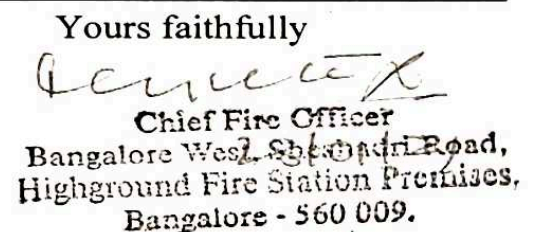 Yours faithfully
Chief Fire Officer
Bangalore West, Road,
Highground Fire Station Premises,
Bangalore - 560 009.